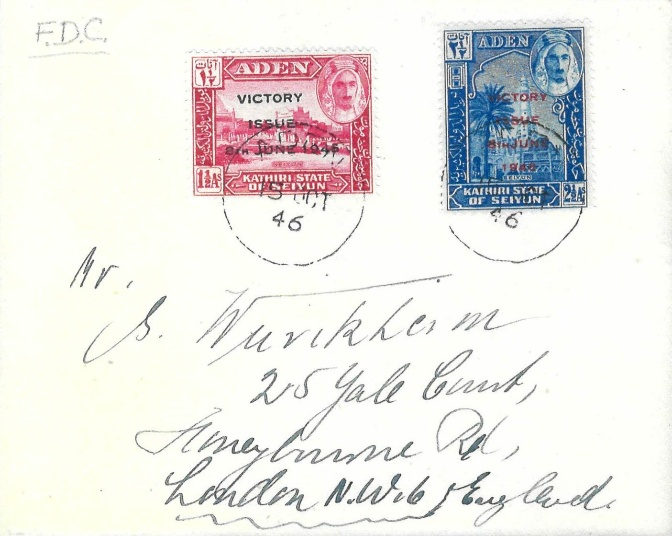 F.D.C.
ADEN
VICTORY
ISSUE
8TH JUNE 1946
1½ As
KATHIRI STATE
OF SEIYUN
ADEN
VICTORY
ISSUE
8TH JUNE
1946
SEIYUN
KATHIRI STATE
OF SEIYUN
2½ As
15 OCT
46
46
Mr.
25 Yale Court,
Honeybourne Rd,
London N.W.6, England.